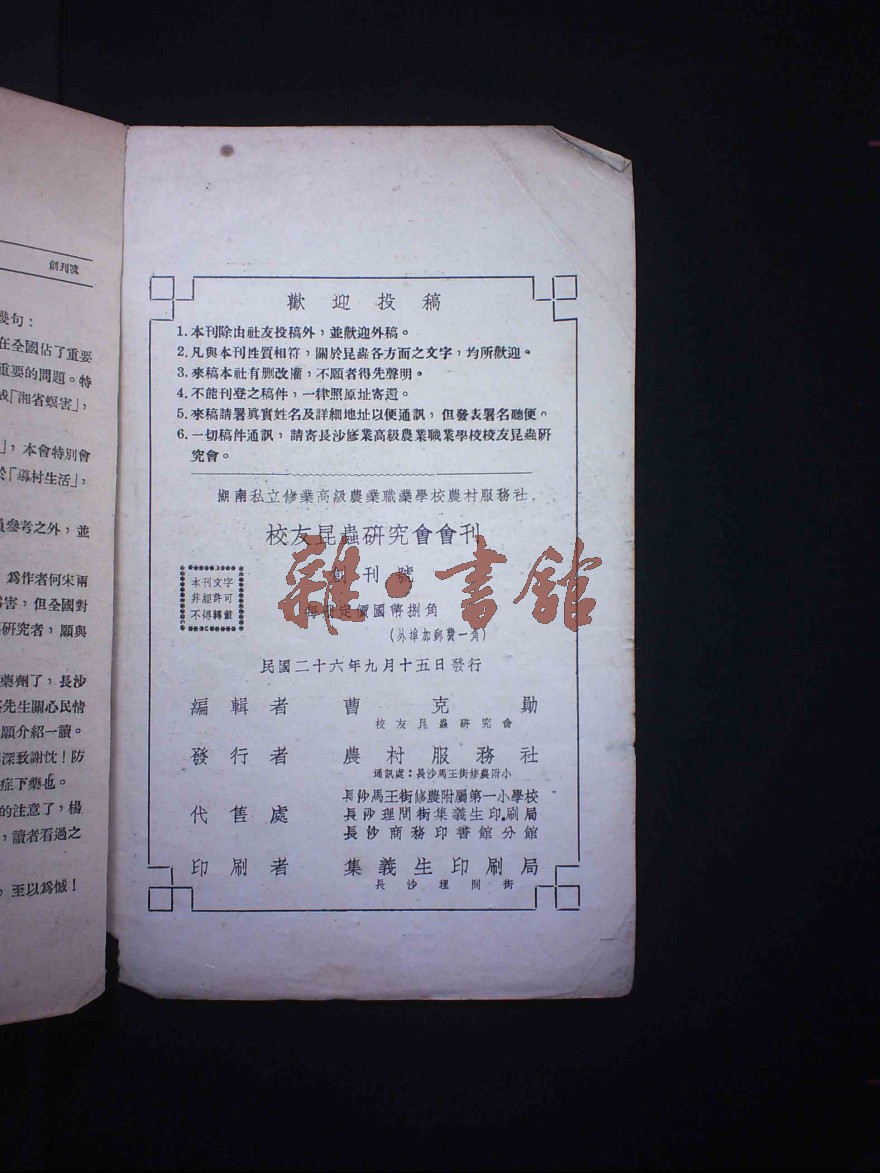 創刊號
幾句：
在全國佔了重要
重要的問題。特
或「湘省螟害」，
」，本會特別會
於「導村生活」，
員參考之外，並
為作者何宋兩
害，但全國對
研究者，願與
藥劑了，長沙
先生關心民情
願介紹一讀。
深致謝忱！防
症下藥也。
的注意了，楊
，讀者看過之
，至以為憾！
歡迎投稿
1.本刊除由社友投稿外，並歡迎外稿。
2.凡與本刊性質相符，關於昆蟲各方面之文字，均所歡迎。
3.來稿本社有刪改權，不願者得先聲明。
4.不能刊登之稿件，一律照原址寄還。
5.來稿請署眞實姓名及詳細地址以便通訊，但發表署名聽便。
6.一切稿件通訊，請寄長沙修業高級農業職業學校校友昆蟲研
究會。
湖南私立修業高級農業職業學校農村服務社
校友昆蟲研究會會刊
創刊號
本刊文字
非經許可
不得轉載
每冊定價國幣捌角
(外埠加郵費一角)
雜·書館
民國二十六年九月十五日發行
編輯者 曹克勛
校友昆蟲研究會
發行者 農村服務社
通訊處：長沙馬王街修農附小
代售處 長沙馬王街修農附屬第一小學校
長沙理問街集義生印刷局
長沙商務印書館分館
印刷者 集義生印刷局
長沙理問街